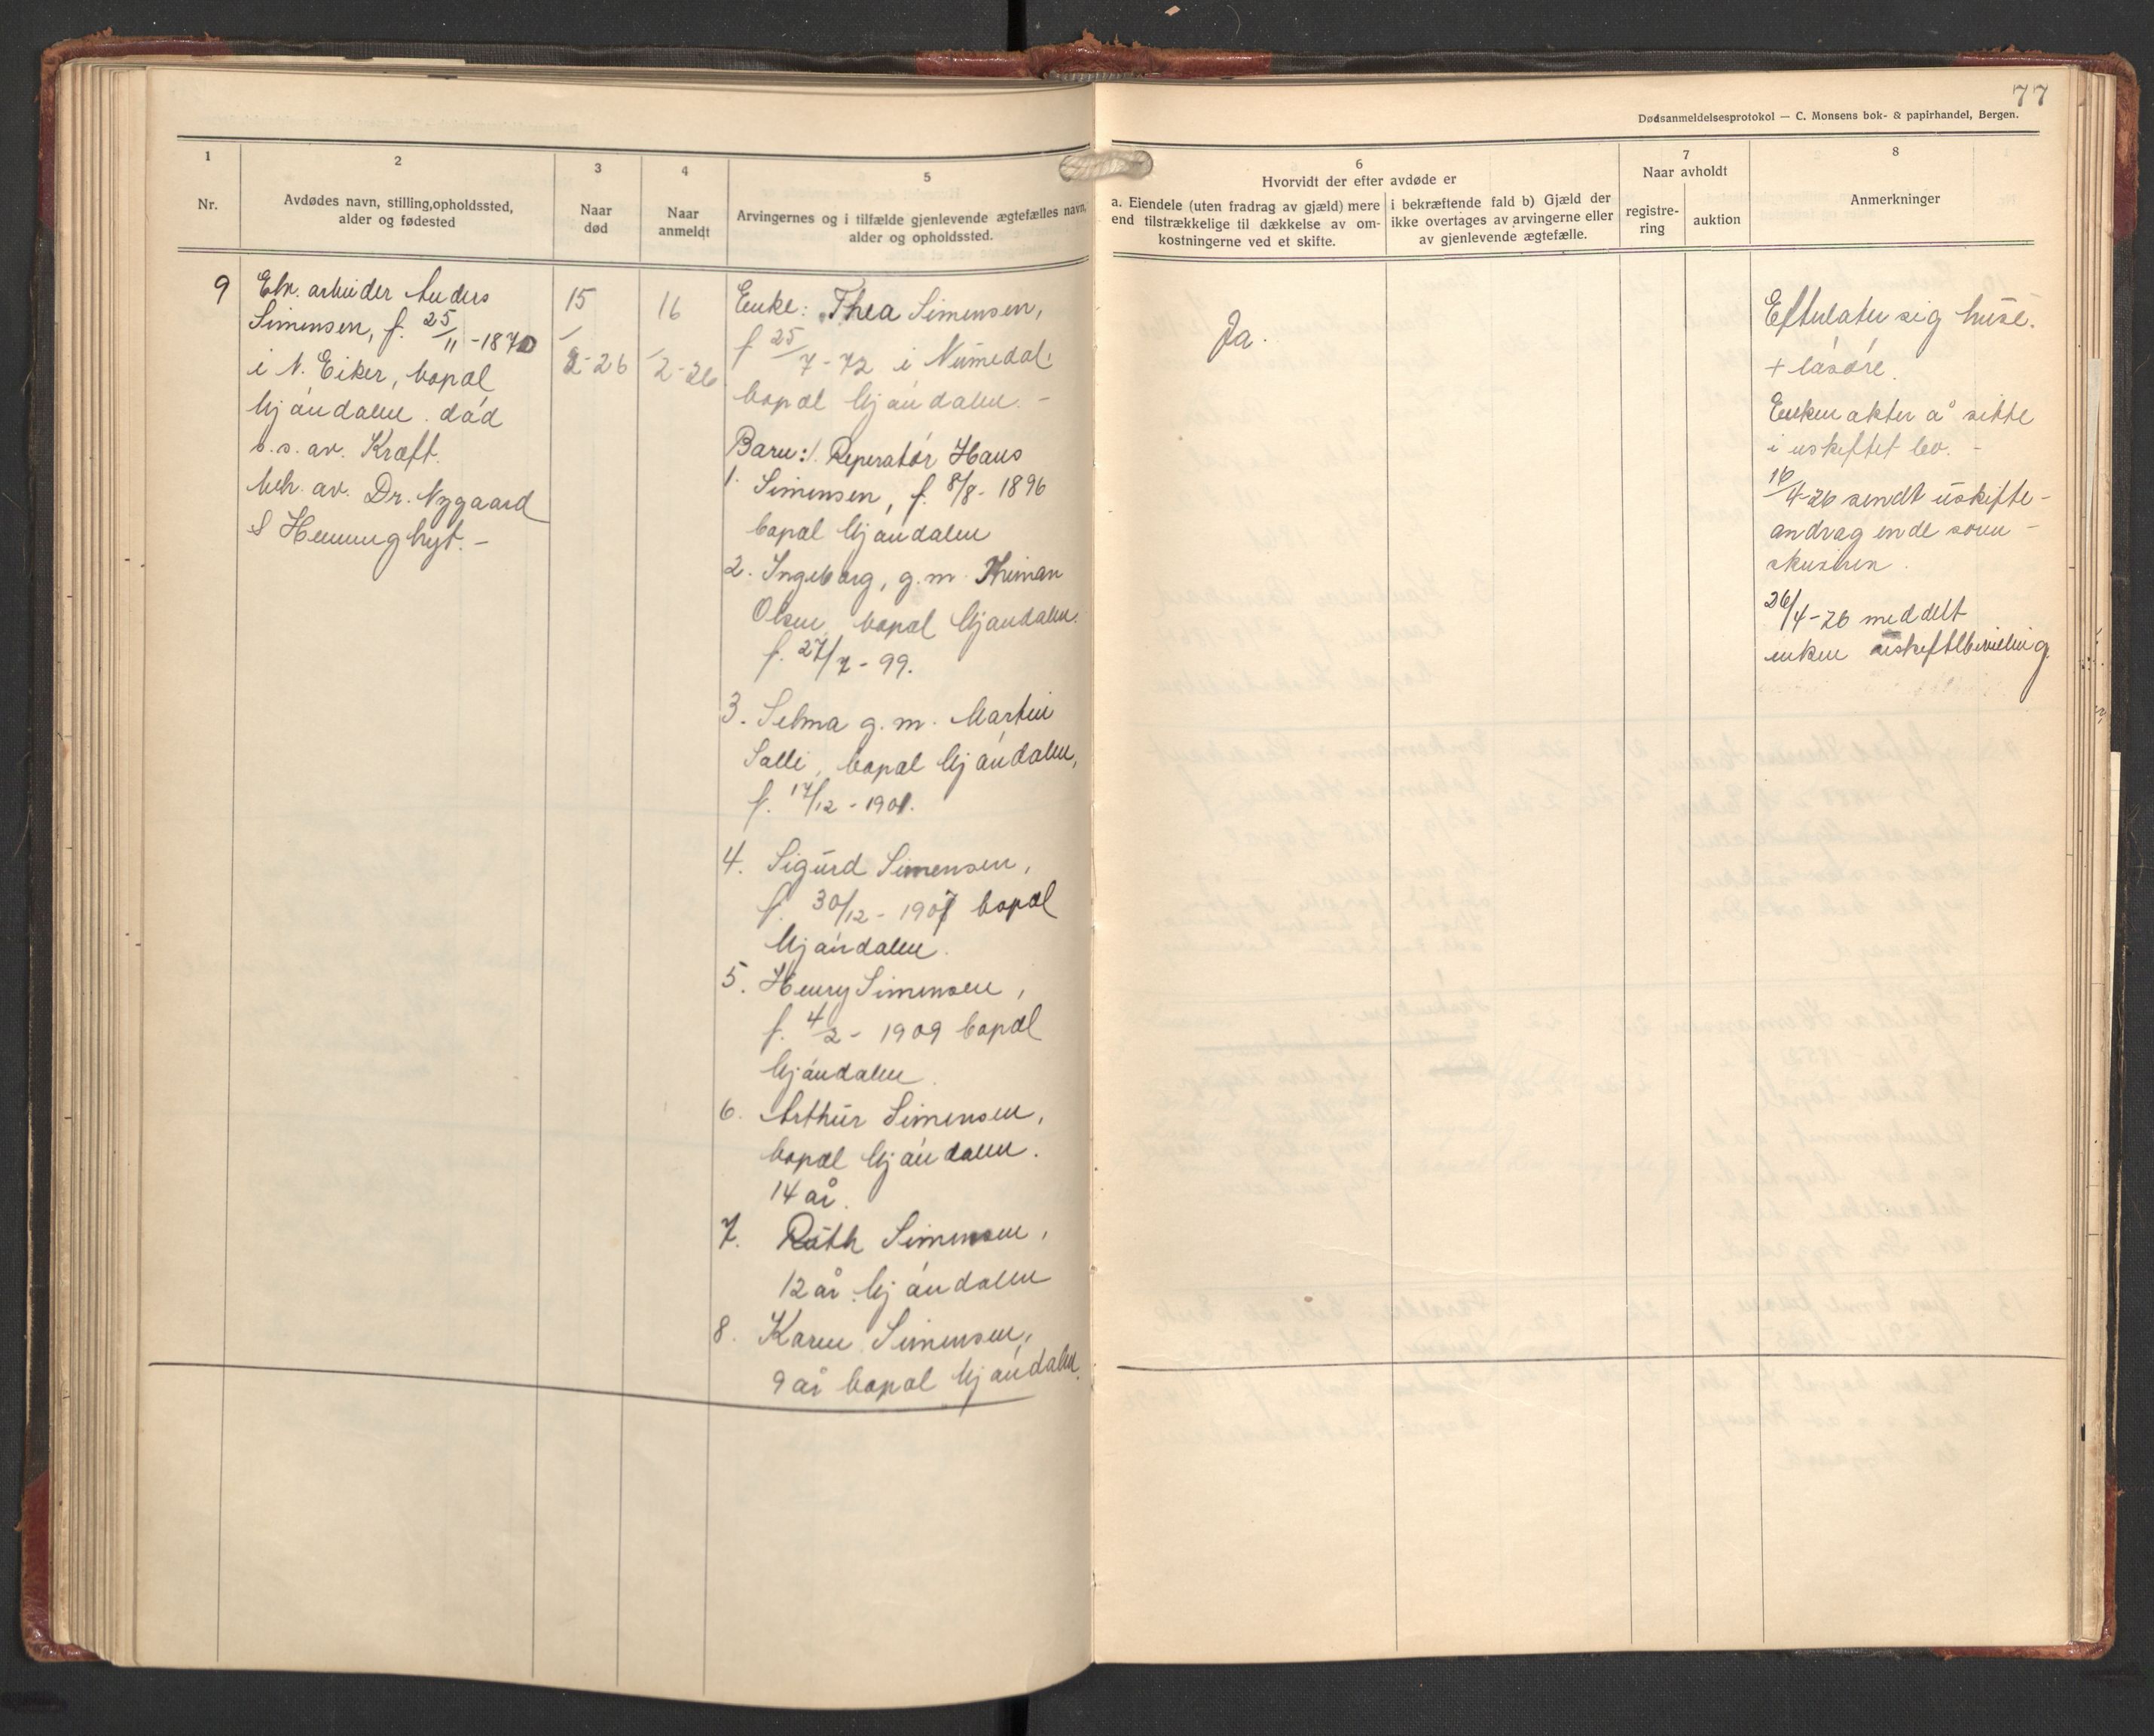 77
Dødsanmeldelsesprotokol — C. Monsens bok- & papirhandel, Bergen.
1
Nr.
2
Avdødes navn, stilling, opholdssted,
alder og fødested
3
Naar
død
4
Naar
anmeldt
5
Arvingernes og i tilfælde gjenlevende ægtefælles navn,
alder og opholdssted.
6
Hvorvidt der efter avdøde er
a. Eiendele (uten fradrag av gjæld) mere
end tilstrækkelige til dækkelse av om-
kostningerne ved et skifte.
i bekræftende fald b) Gjæld der
ikke overtages av arvingerne eller
av gjenlevende ægtefælle.
7
Naar avholdt
registre-
ring
auktion
8
Anmerkninger
9
arbeider Anders
Simensen, f. 25/11-1870
i N. Eiker, bopæl
Mjøndalen. død
s.s. av. Kræft.
beh. av. Dr. Nygaard
15/2-26
16/2-26
Enke: Thea Simensen,
f 25/7-72 i Numedal.
bopæl Mjøndalen. -
Barn: Reperatør Hans
1. Simensen, f. 8/8-1896
bopæl Mjøndalen
2. Ingeborg, g.m.
Olsen, bopæl Mjøndalen.
f. 27/7-99.
3. Selma g.m. Martin
Salli, bopæl Mjøndalen,
f. 17/12-1901.
4. Sigurd Simensen,
f. 30/12-1907 bopæl
Mjøndalen.
5. Henry Simensen,
f. 4/2-1909 bopæl
Mjøndalen.
6. Arthur Simensen,
bopæl Mjøndalen.
14 år.
7. Ruth Simensen,
12 år Mjøndalen
8. Karen Simensen,
9 år bopæl Mjøndalen.
Ja.
Efterlater sig huse.
+ løsøre.
Enken akter å sitte
i uskiftet bo. -
16/4-26 sendt uskifte-
andragende soren-
skriveren.
26/4-26 meddelt
enken uskiftebevilling